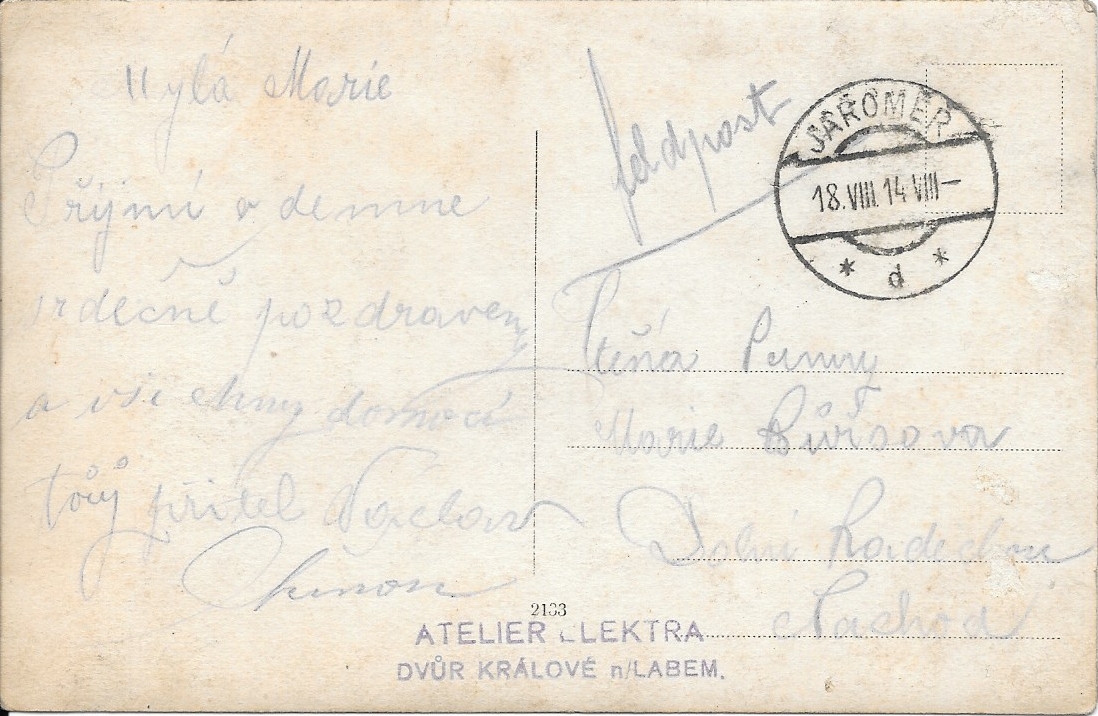 Mylá Marie
Přijmi odemne
srdečně pozdraveny
a všechny domácí
tvůj přítel Vaclav
feldpost
JAROMĚŘ
18.VIII.14 VIII–
* d *
Ctěná Panny
Marie
Dolni Radechova
Nachod
2133
ATELIER ELEKTRA
DVŮR KRÁLOVÉ n/LABEM.